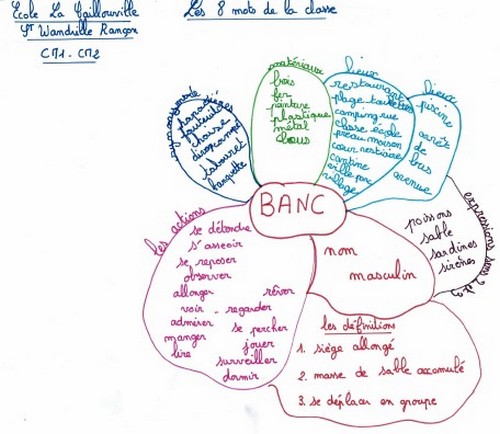 Ecole La Caillouville
St Wandrille Rançon
CM1-CM2
Les 8 mots de la classe
synonymes
canapé
fauteuil
chaise
strapontin
tabouret
banquette
matériaux
bois
fer
peinture
plastique
métal
clous
lieux
restaurant
plage toilettes
camping rue
classe école
préau maison
cour vestiaire
cantine
ville parc
village
lieux
piscine
arrêt
de
bus
avenue
BANC
les actions
se détendre
s'asseoir
se reposer
observer
allonger rêver
voir - regarder
admirer se percher
manger jouer
lire surveiller
dormir
nom
masculin
expressions
poissons
sable
sardines
sirènes
les définitions
1. siège allongé
2. masse de sable accumulé
3. se déplacer en groupe